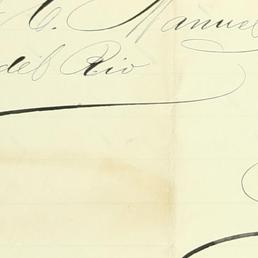 C. Manuel
del Rio